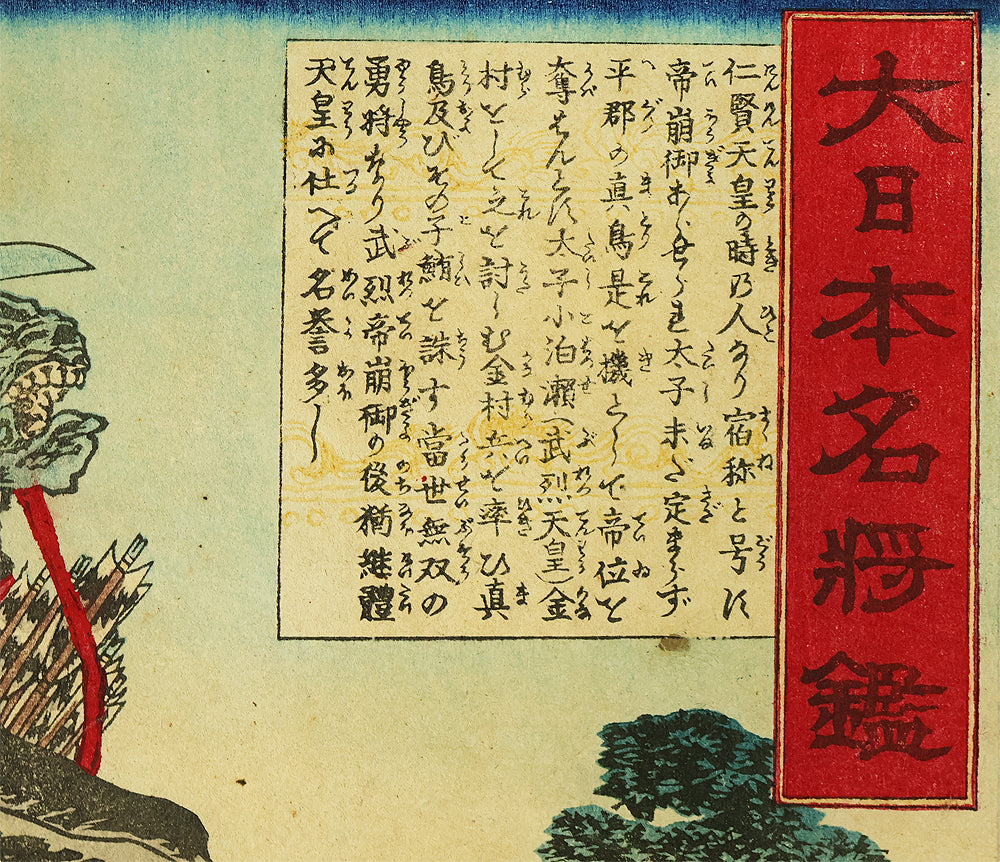 大日本名將鑑
仁賢天皇の時乃人なり宿称と号す
帝崩御あらせられ太子未だ定まらず
平郡の真鳥是を機として帝位を
奪はんとす太子小泊瀬(武烈天皇)金
村をして之を討しむ金村兵を率ひ真
鳥及びその子鮪を誅す當世無双の
勇將なり武烈帝崩御の後猶継體
天皇に仕へて名誉多し